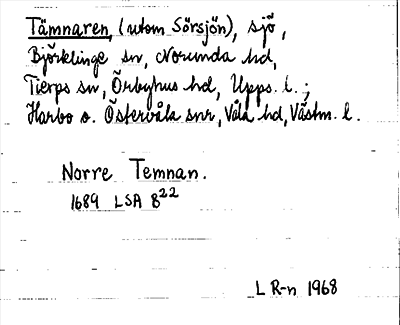 Tämnaren, (utom Sörsjön), sjö,
Björklinge sn, Norunda hd,
Tierps sn, Örbyhus hd, Upps. l.;
Harbo o. Östervåla snr, Våla hd, Västm. l.
Norre Temnan.
1689 LSA B22
L R-n 1968